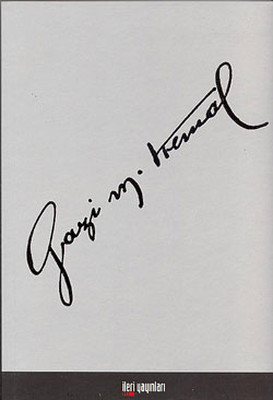 Gazi M. Kemal
ileri yayınları